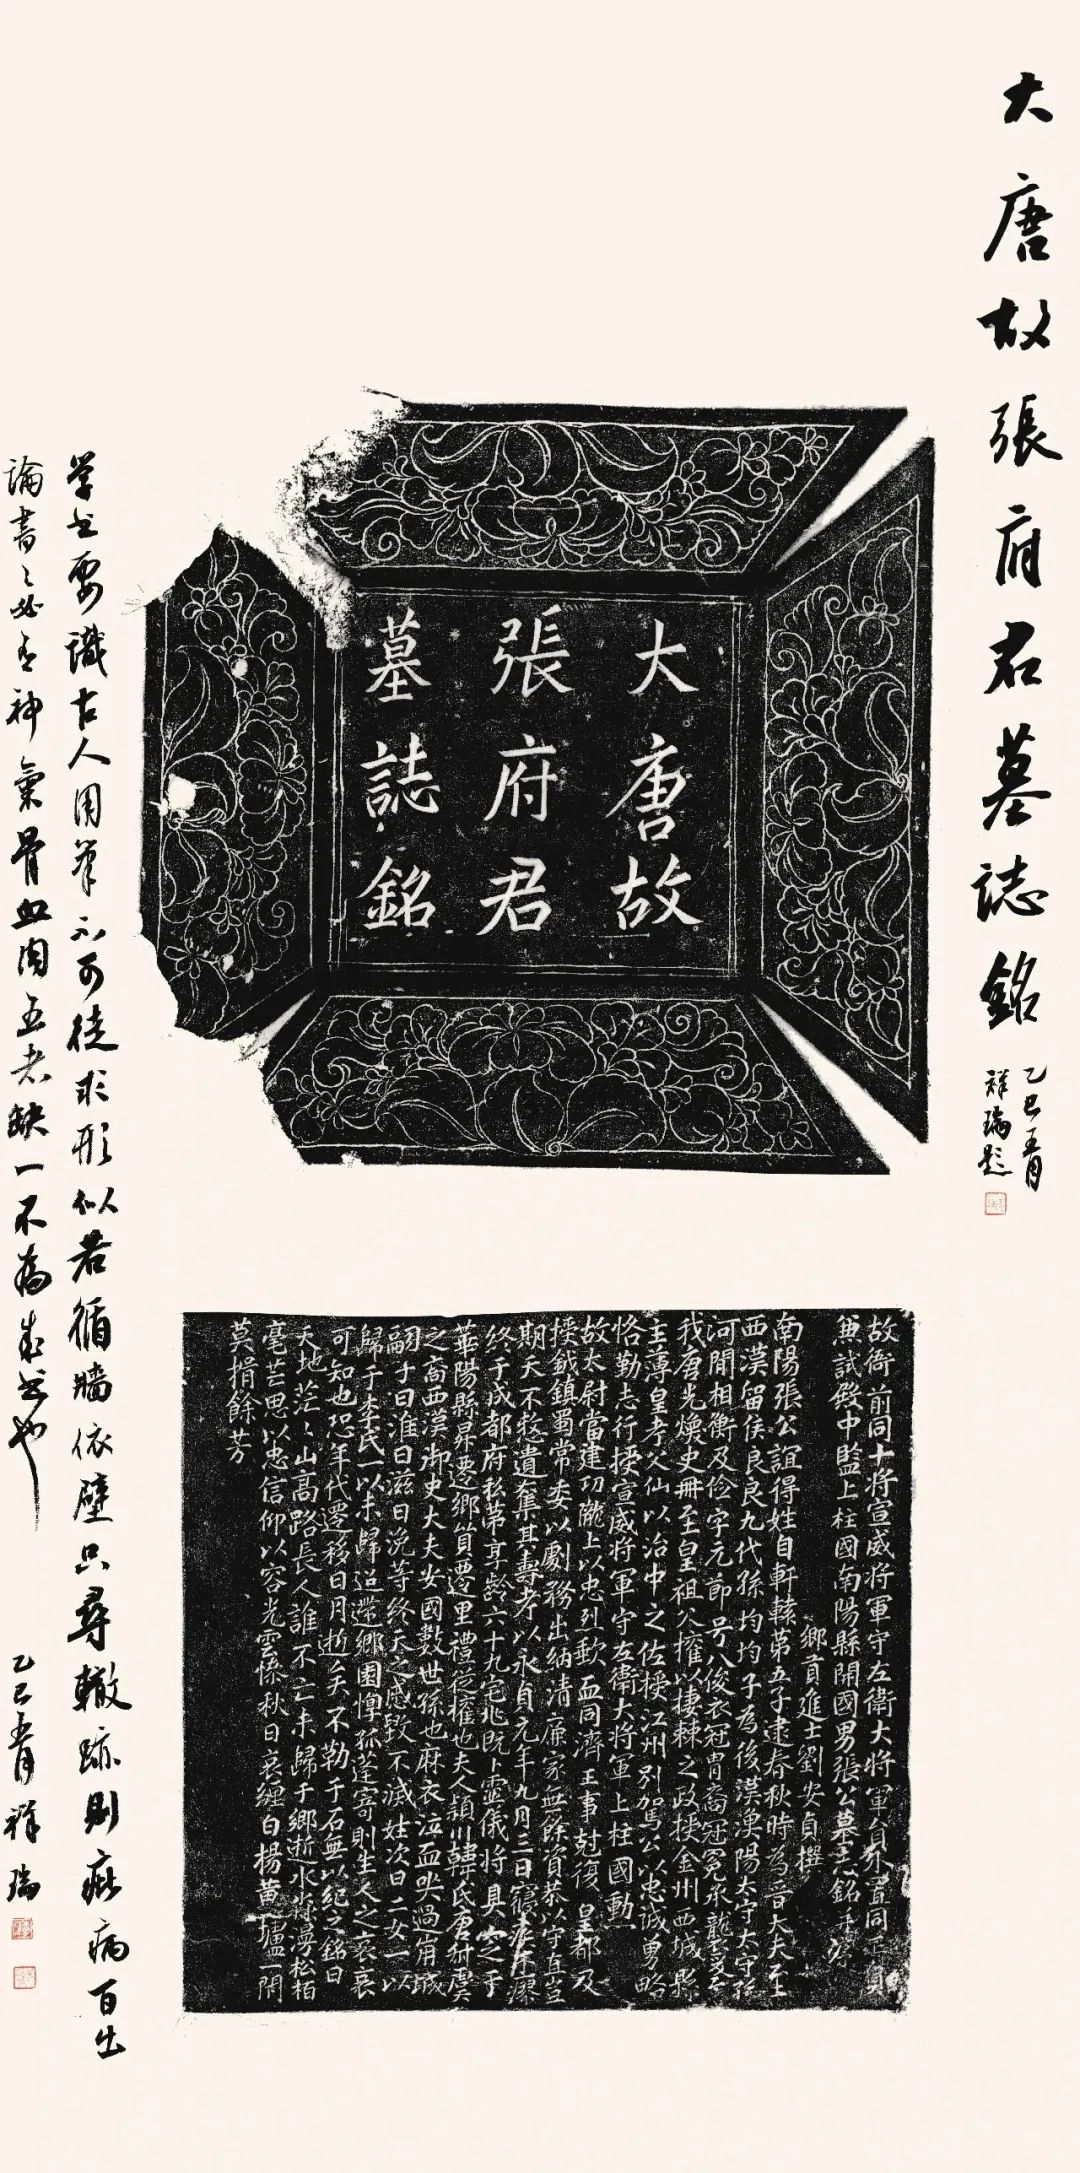 大唐故張府君墓誌銘
乙巳五月
祥瑞題
大唐故
張府君
墓誌銘
故衙前同十将宣威将軍守左衛大将軍員外置同正員
兼試殿中監上柱國南陽縣開國男張公墓志銘并序
鄉貢進士劉安貞撰
南陽張公誼得姓自軒轅第五子逮春秋時為晉大夫至
西漢留侯良良九代孫均均子為後漢漁陽太守太守孫
河閒相衡及伶字元節号八俊衣冠冑裔冠冕承襲至
我唐光煥史冊至皇祖公擢以棲棘之政授金州西城縣
主薄皇考父仙以治中之佐授江州別駕公以忠誠勇略
恪勤志行授宣威将軍守左衛大将軍上柱國勳
故太尉當建功隴上以忠烈歃血同濟王事尅復皇都及
授鉞鎮蜀常委以劇務出納清廉家無餘資恭以守直豈
期天不憖遺奪其壽考以永貞元年九月三日寢疾不瘳
終于成都府私第享齡六十九宅兆既卜靈儀将具之于
華陽縣昇遷鄉賀遷里禮從權也夫人潁川韓氏君祔虞
之裔西漢御史大夫安國數世孫也麻衣泣血哭過崩城
嗣子曰淮曰滋曰沇等終天之感毀不滅姓次曰二女一以
歸于李氏一以未歸迢遰鄉國惸孤蓬寄則生人之哀哀
可知也恐年代遷移日月逝矣不勒于石無以紀之銘曰
天地茫茫山高路長人誰不亡未歸于鄉逝水湝湝松栢
毫芒思以忠信仰以容光雲愁秋日哀纏白楊黃壚一閇
莫捐餘芳
学书要識古人用筆不可徒求形似若循牆依壁只尋轍跡則疵病百出
論書書必有神氣骨血肉五者缺一不為成书也
乙巳五月祥瑞